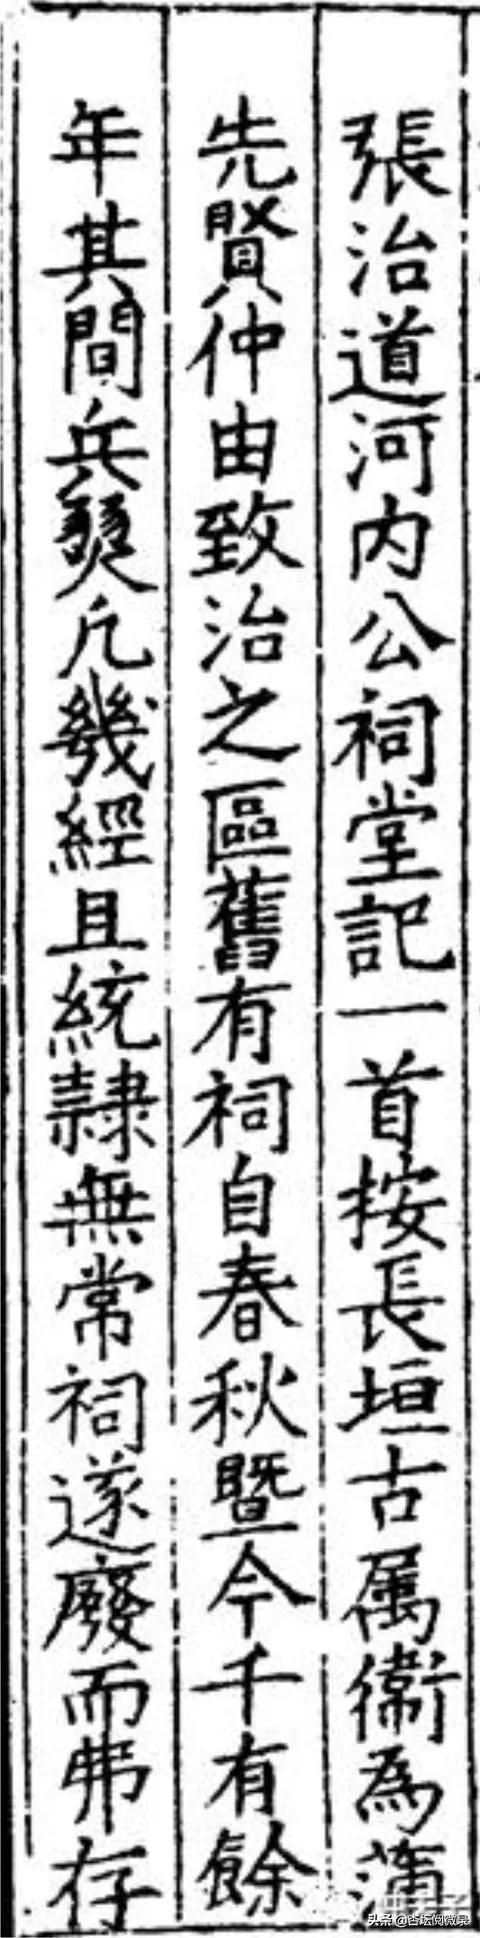 張治道河内公祠堂記一首按長垣古属衛為蒲
先賢仲由致治之區舊有祠自春秋暨今千有餘
年其間兵燹凢幾經且統隷無常祠遂廢而弗存
头条@杏坛阅微录